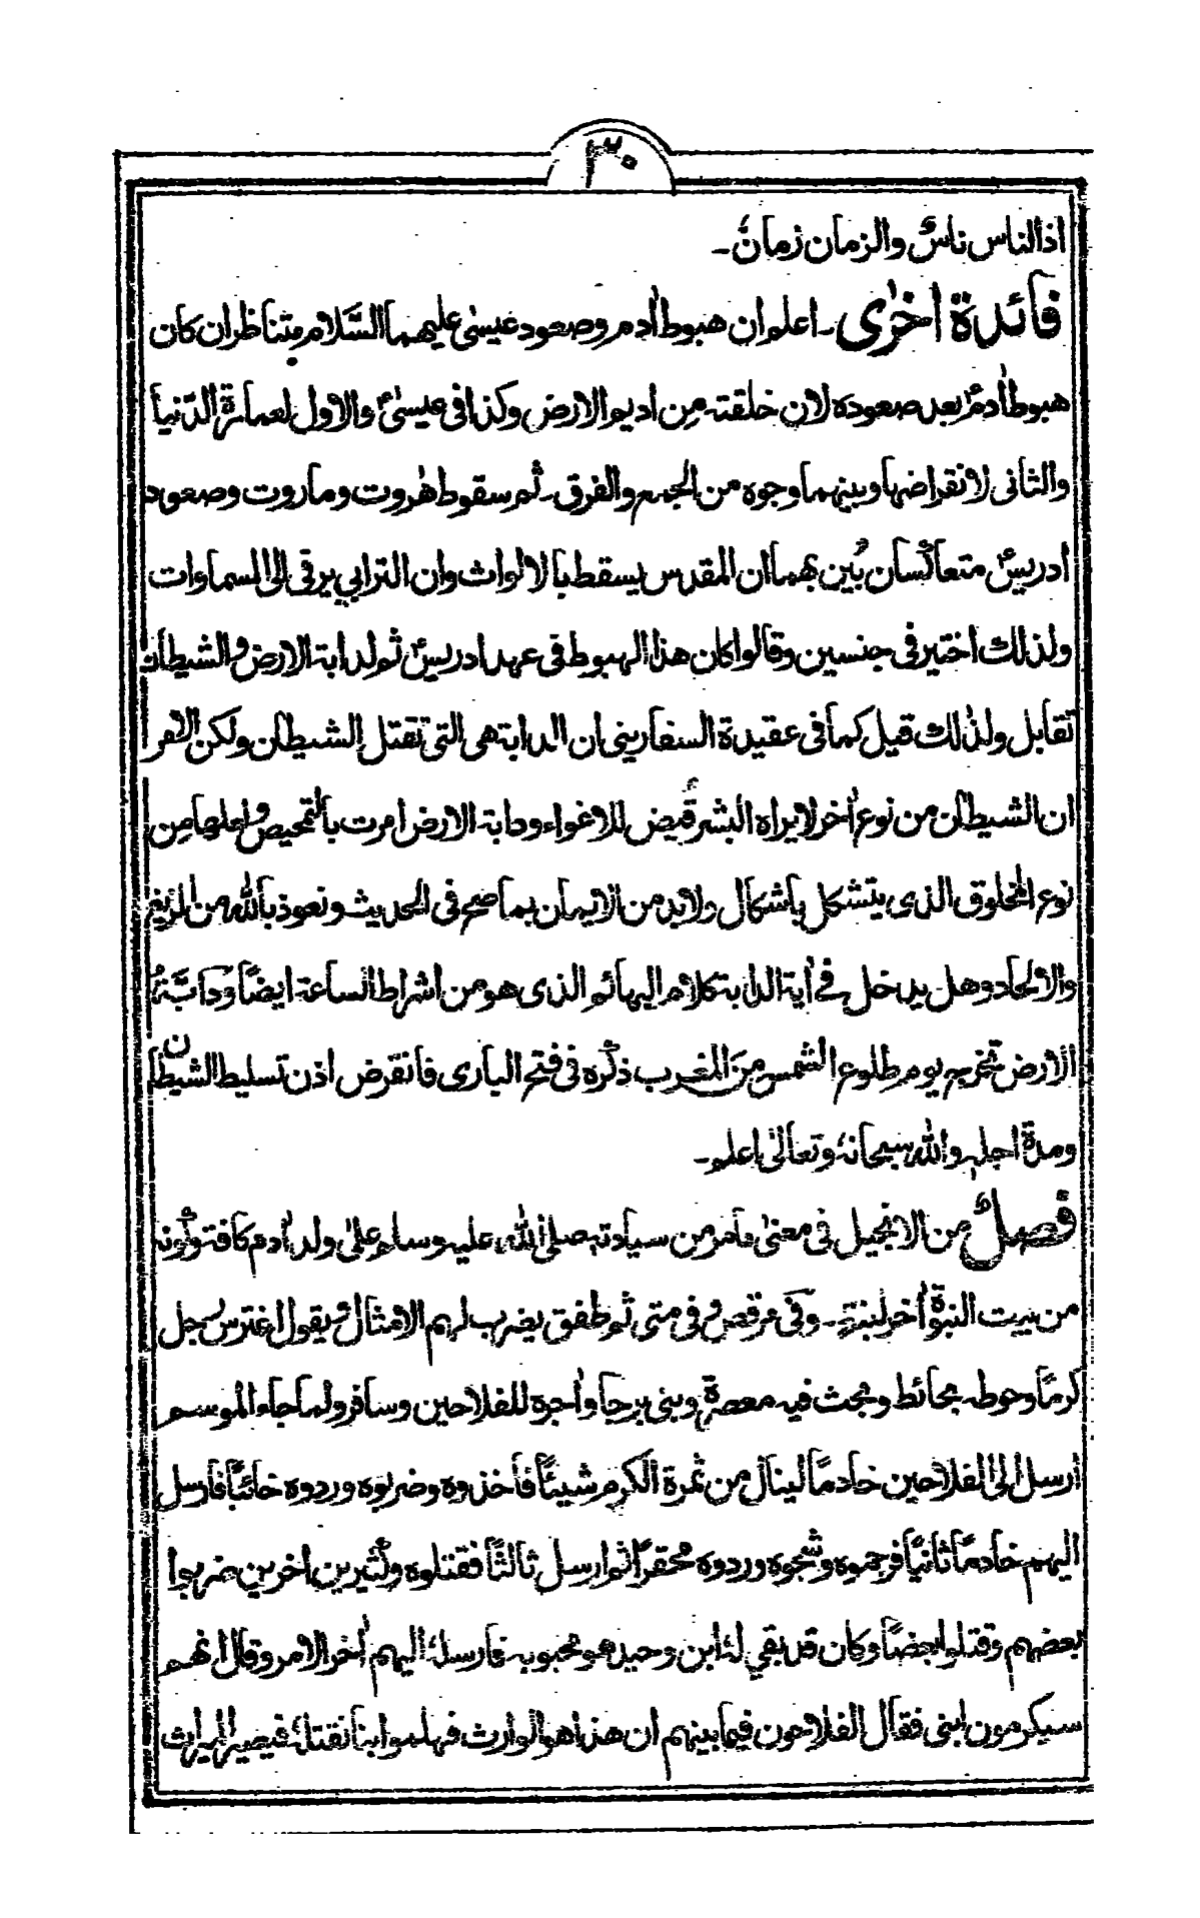 ٣٠
اذالناس ناسٌ والزمان زمانٌ ۔
فائدة اخرٰى ۔ اعلم ان هبوط اٰدم وصعود عيسىٰ عليهما السَّلام متناظران كان
هبوط اٰدمؑ بعد صعوده لان خلقته من اديم الارض وكذا فى عيسىٰؑ والاول لعمارة الدّنيا
والثانى لانقراضها وبينهما وجوه من الجمع والفرق ۔ ثم سقوط هٰروت وماروت وصعود
ادريسؑ متعاكسان بُين بهما ان المقدس يسقط بالالواث وان الترابي يرقى الى السماوات
ولذلك اختير فى جنسين وقالوا كان هذا الهبوط فى عهد ادريسؑ ثم لدابة الارض والشيطان
تقابل ولذٰلك قيل كما فى عقيدة السفارينى ان الدابة هى التى تقتل الشيطان ولكن الامر
ان الشيطان من نوع اٰخر لايراه البشر قُيض للاغواء ودابة الارض امرت بالتمحيص ولعلها من
نوع المخلوق الذى يتشكل باشكال ولابد من الايمان بما صح فى الحديث ونعوذ بالله من الزيغ
والالحاد وهل يدخل فى اٰية الدابة كلام البهائم الذى هو من اشراط الساعة ايضًا ودَابَّةُ
الارض تخرج يوم طلوع الشمس مِنَ المغرب ذكره فى فتح البارى فانقرض اذن تسليط الشيطان
ومدة اجله والله سبحانهٗ وتعالىٰ اعلم ۔
فصلٌ من الانجيل فى معنىٰ مامر من سيادته صلى الله عليه وسلم علىٰ ولد اٰدم كافة وكونه
من بيت النبوة اٰخر لبنةٍ ۔ وفى مرقص وفى متى ثم طفق يضرب لهم الامثال ويقول اغترس رجل
كرمًا وحوطه بحائط وبحث فيه معصرة وبنى برجا واٰجره للفلاحين وسافر ولما جاء الموسم
ارسل الى الفلاحين خادمًا لينال من ثمرة الكرم شيئًا فاخذوه وضربوه وردوه خائبًا فارسل
اليهم خادمًا ثانيًا فرجموه وشجوه وردوه محقرًا ثم ارسل ثالثًا فقتلوه وكثيرين اٰخرين ضربوا
بعضهم وقتلوا بعضًا وكان قد بقي لهٗ ابن وحيد هو محبوبه فارسلهٗ اليهم اٰخر الامر وقال انهم
سيكرمون ابنى فقال الفلاحون فيما بينهم ان هذا هو الوارث فهلموا بنا نقتلهٗ فيصير الميراث